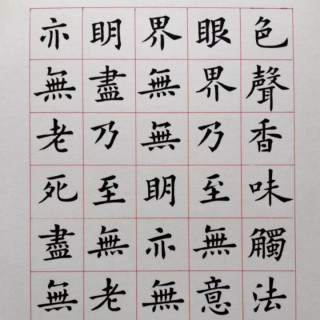 色聲香味觸法
眼界乃至無意
界無無明亦無
明盡乃至無老
亦無老死盡無